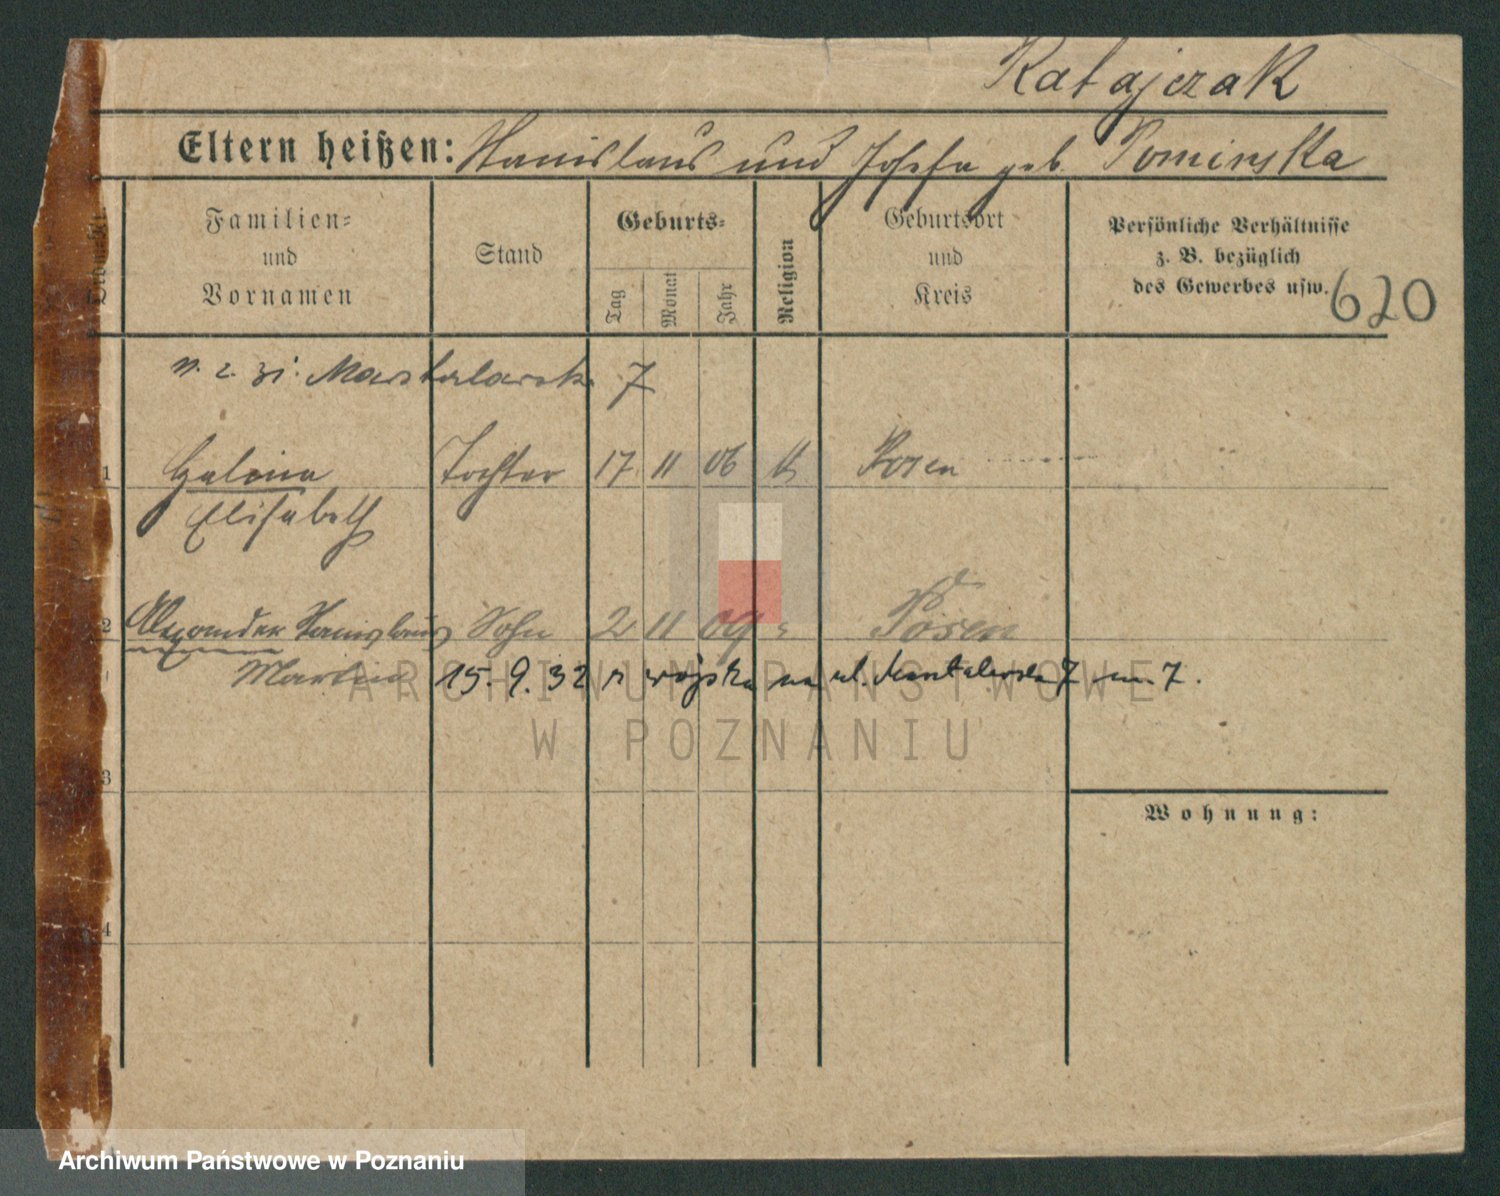 Ratajczak
Eltern heißen: Stanislaus und Josefa geb. Pominska
Ordnungs-Nr.
Familien-
und
Vornamen
Stand
Geburts-
Tag
Monat
Jahr
Religion
Geburtsort
und
Kreis
Persönliche Verhältnisse
z. B. bezüglich
des Gewerbes usw.
620
7
1 Halina Tochter 17 11 06 k Posen
Elisabeth
2 Alexander Stanislaus Sohn 2 11 09 " Posen
Martin 15. 9. 32 z wojska na ul. 7 m 7.
3
Wohnung:
4
ARCHIWUM PAŃSTWOWE
W POZNANIU
Archiwum Państwowe w Poznaniu